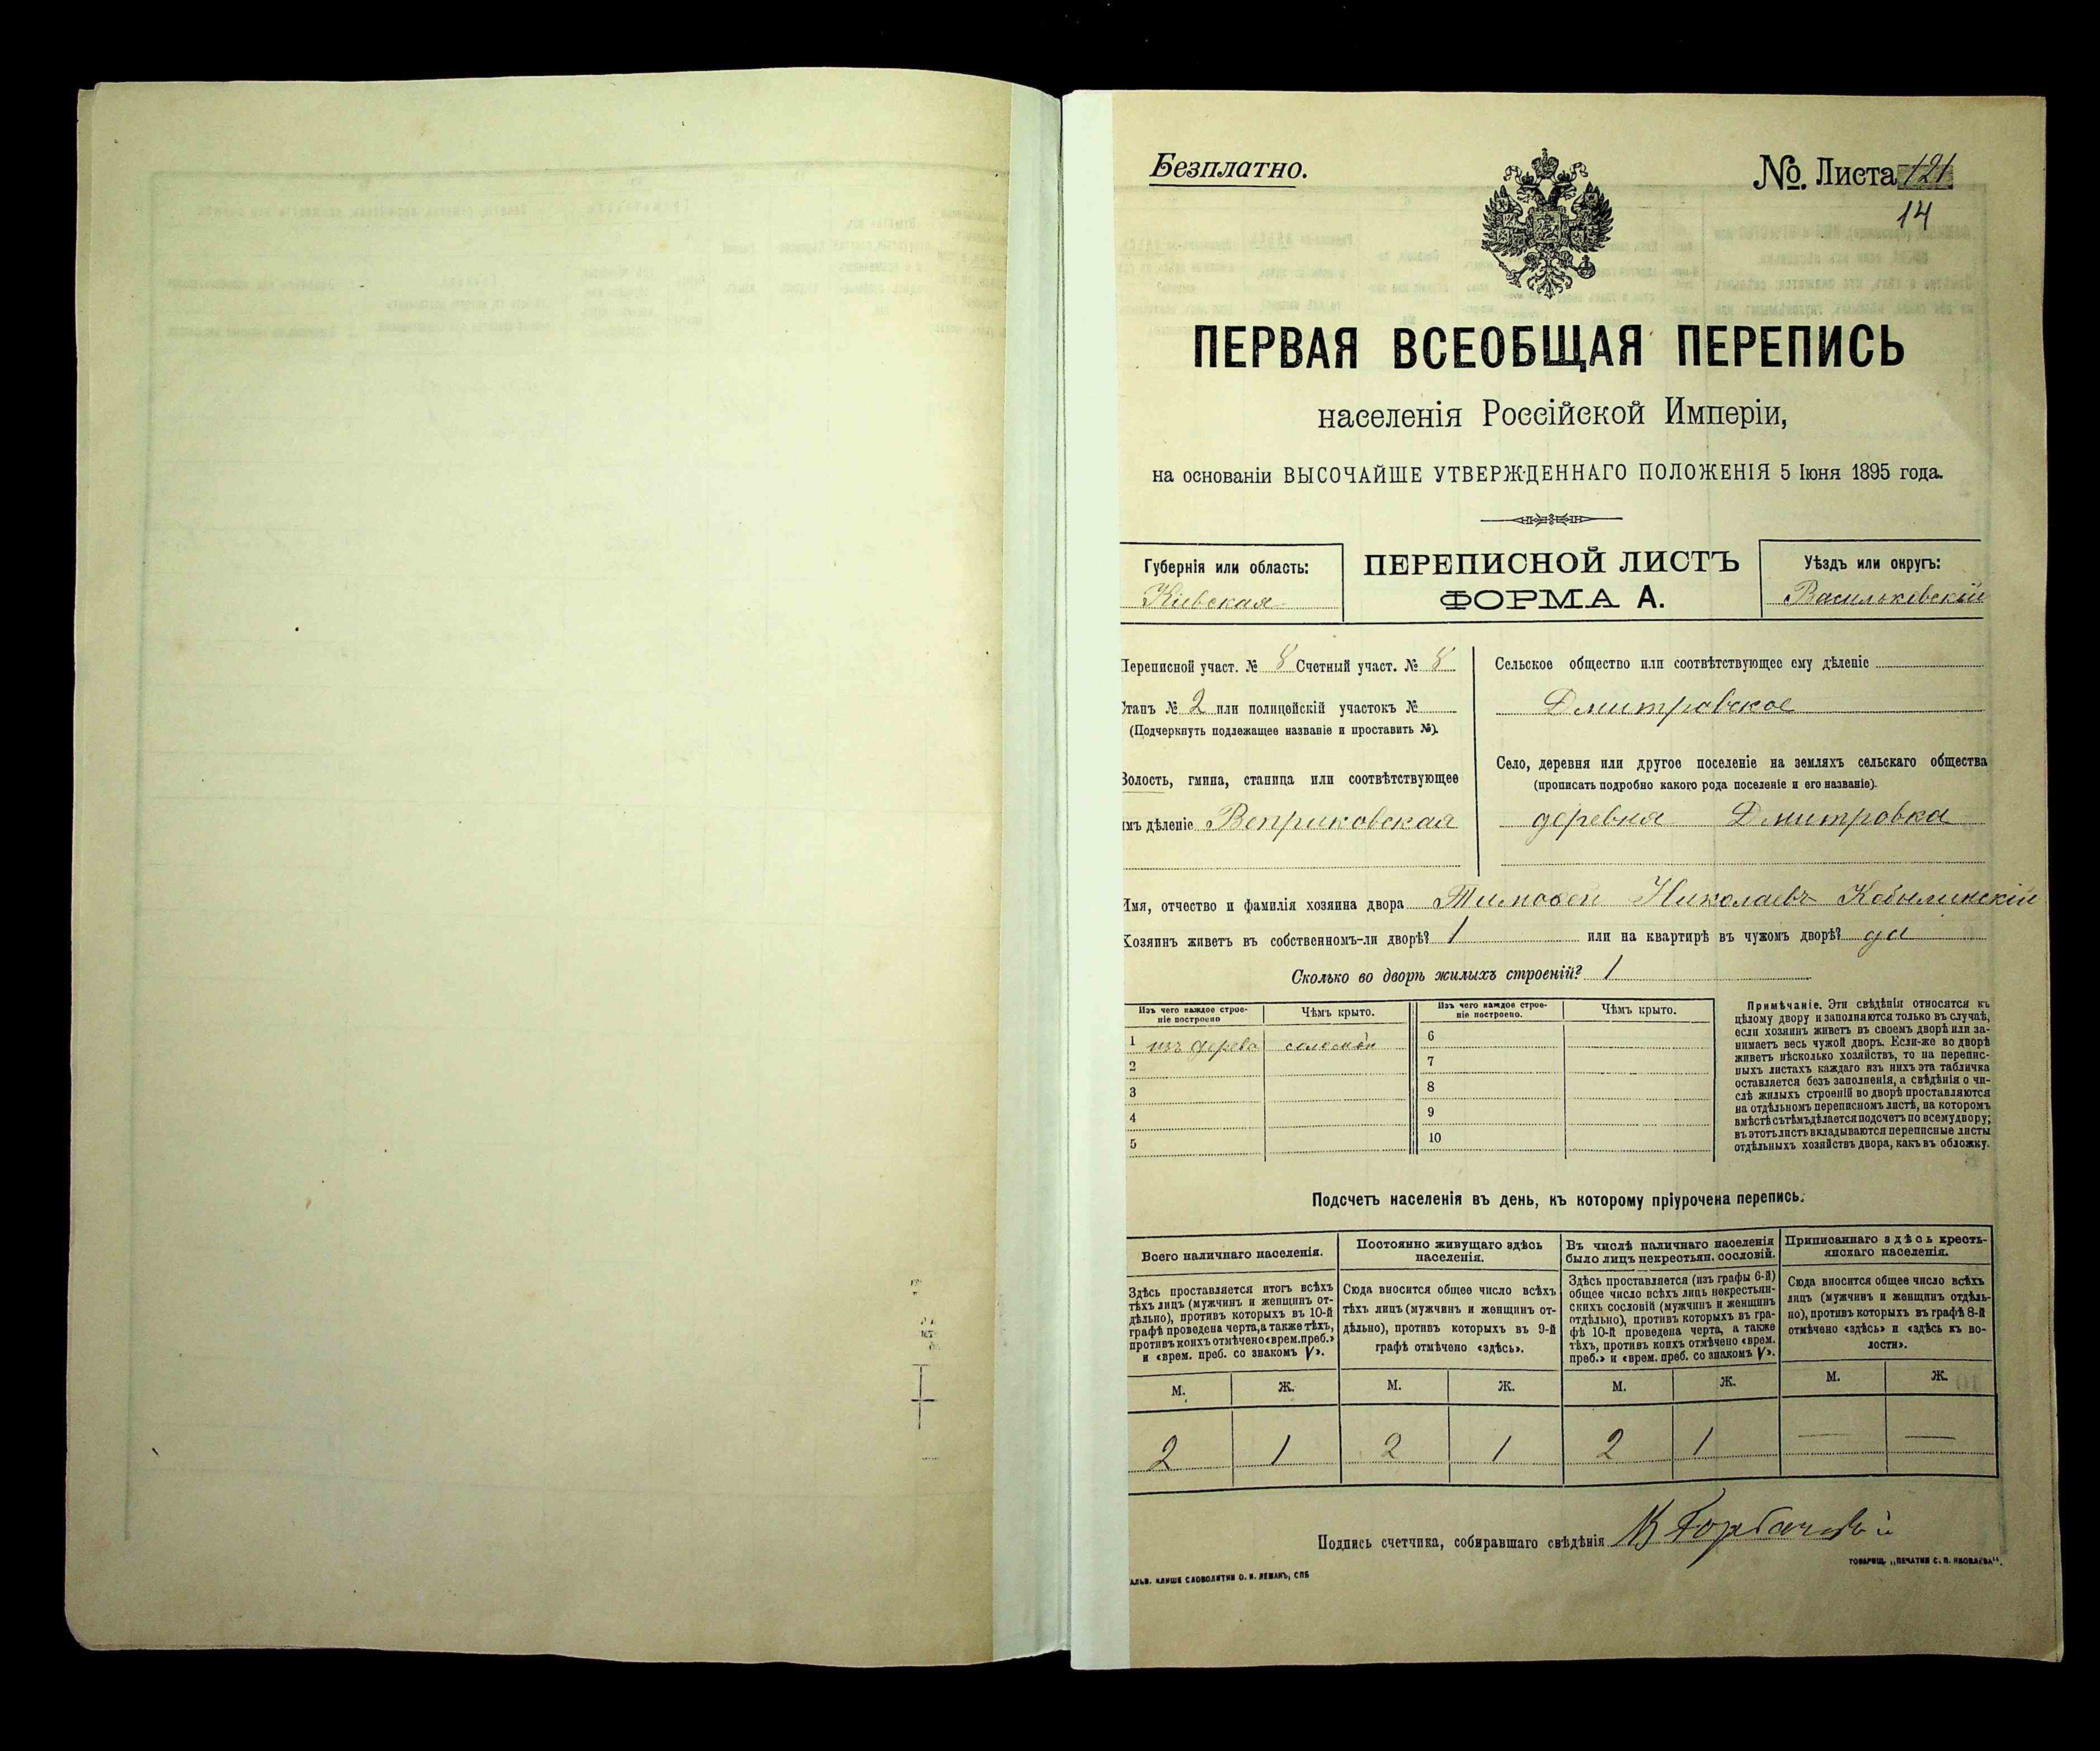 Безплатно.
№. Листа 121
14
ПЕРВАЯ ВСЕОБЩАЯ ПЕРЕПИСЬ
населенія Россійской Имперіи,
на основаніи ВЫСОЧАЙШЕ УТВЕРЖДЕННАГО ПОЛОЖЕНІЯ 5 Іюня 1895 года.
Губернія или область:
Кіевская
ПЕРЕПИСНОЙ ЛИСТЪ
ФОРМА А.
Уѣздъ или округъ:
Васильковскій
Переписной участ. № 8 Счетный участ. № 8
Станъ № 2 или полицейскій участокъ №
(Подчеркнуть подлежащее названіе и проставить №).
Волость, гмина, станица или соотвѣтствующее
имъ дѣленіе Веприковская
Сельское общество или соотвѣтствующее ему дѣленіе
Дмитровское
Село, деревня или другое поселеніе на земляхъ сельскаго общества
(прописать подробно какого рода поселеніе и его названіе).
деревня Дмитровка
Имя, отчество и фамилія хозяина двора Тимофей Николаевъ Кобылинскій
Хозяинъ живетъ въ собственномъ-ли дворѣ? 1 или на квартирѣ въ чужомъ дворѣ? да
Сколько во дворѣ жилыхъ строеній? 1
Изъ чего каждое строе-
ніе построено
Чѣмъ крыто.
Изъ чего каждое строе-
ніе построено.
Чѣмъ крыто.
1 изъ дерева соломой
2
3
4
5
6
7
8
9
10
Примѣчаніе. Эти свѣдѣнія относятся къ
цѣлому двору и заполняются только въ случаѣ,
если хозяинъ живетъ въ своемъ дворѣ или за-
нимаетъ весь чужой дворъ. Если-же во дворѣ
живетъ нѣсколько хозяйствъ, то на перепис-
ныхъ листахъ каждаго изъ нихъ эта табличка
оставляется безъ заполненія, а свѣдѣнія о чи-
слѣ жилыхъ строеній во дворѣ проставляются
на отдѣльномъ переписномъ листѣ, на которомъ
вмѣстѣ съ тѣмъ дѣлается подсчетъ по всему двору;
въ этотъ листъ вкладываются переписные листы
отдѣльныхъ хозяйствъ двора, какъ въ обложку.
Подсчетъ населенія въ день, къ которому пріурочена перепись.
Всего наличнаго населенія.
Здѣсь проставляется итогъ всѣхъ
тѣхъ лицъ (мужчинъ и женщинъ от-
дѣльно), противъ которыхъ въ 10-й
графѣ проведена черта, а также тѣхъ,
противъ коихъ отмѣчено «врем. преб.»
и «врем. преб. со знакомъ V».
Постоянно живущаго здѣсь
населенія.
Сюда вносится общее число всѣхъ
тѣхъ лицъ (мужчинъ и женщинъ от-
дѣльно), противъ которыхъ въ 9-й
графѣ отмѣчено «здѣсь».
Въ числѣ наличнаго населенія
было лицъ некрестьян. сословій.
Здѣсь проставляется (изъ графы 6-й)
общее число всѣхъ лицъ некрестьян-
скихъ сословій (мужчинъ и женщинъ
отдѣльно), противъ которыхъ въ гра-
фѣ 10-й проведена черта, а также
тѣхъ, противъ коихъ отмѣчено «врем.
преб.» и «врем. преб. со знакомъ V».
Приписаннаго здѣсь кресть-
янскаго населенія.
Сюда вносится общее число всѣхъ
лицъ (мужчинъ и женщинъ отдѣль-
но), противъ которыхъ въ графѣ 8-й
отмѣчено «здѣсь» и «здѣсь къ во-
лости».
М. Ж. М. Ж. М. Ж. М. Ж.
2 1 2 1 2 1 — —
Подпись счетчика, собиравшаго свѣдѣнія
АЛЬВ. КЛИШЕ СЛОВОЛИТНИ О. И. ЛЕМАНЪ, СПБ
ТОВАРИЩ. „ПЕЧАТНИ С. П. ЯКОВЛЕВА“.